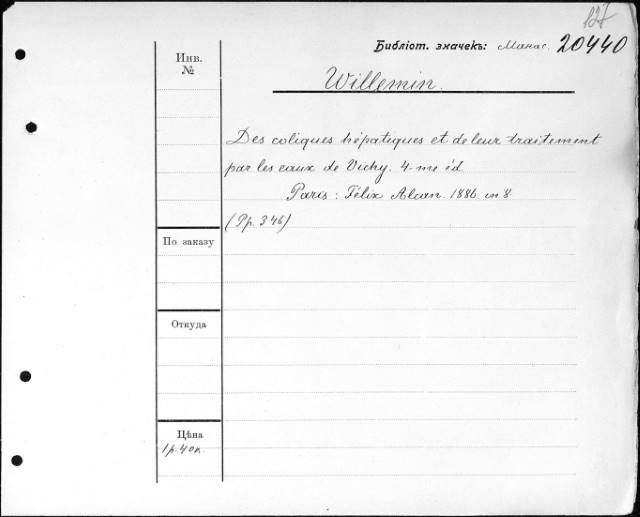 127
Библіот. значекъ: Манас. 20440
Инв.
№
Willemin.
Des coliques hépatiques et de leur traitement
par les eaux de Vichy. 4-me éd
Paris: Félix Alcan. 1886. in 8
(Pp. 346)
По заказу
Откуда
Цѣна
1 р. 40 к.